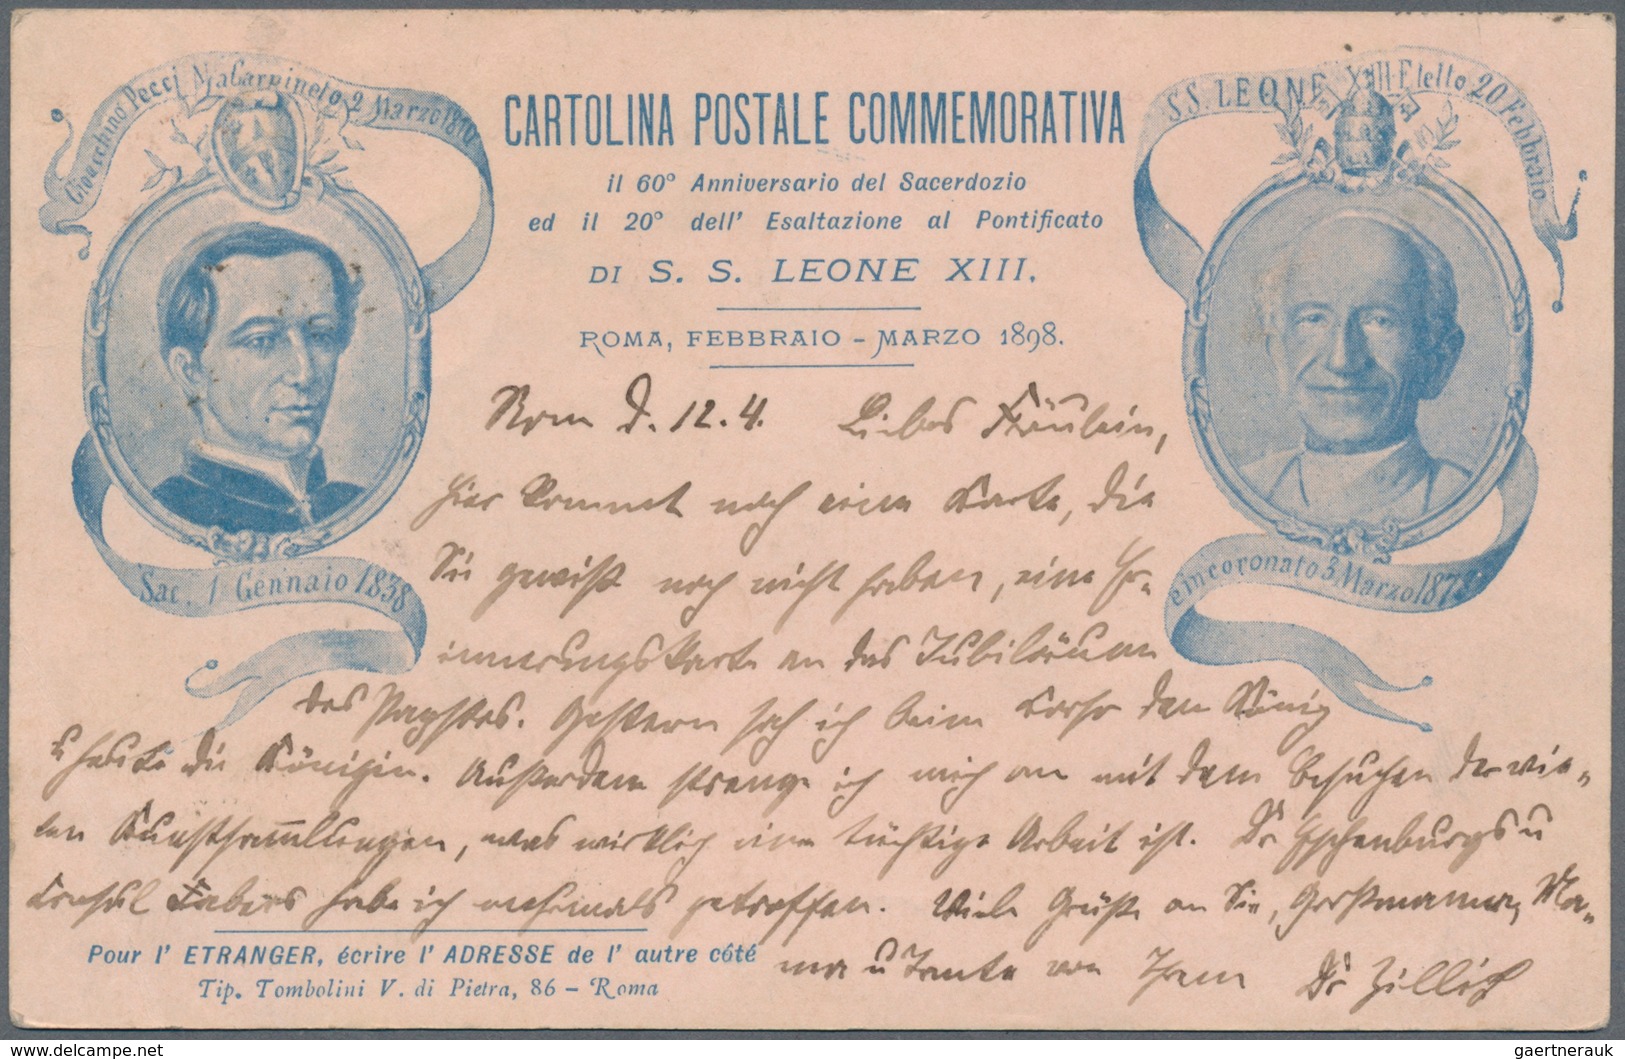 Gioacchino Pecci N. a Carpineto 2 Marzo 1810
S.S. LEONE XIII Eletto 20 Febbraio
CARTOLINA POSTALE COMMEMORATIVA
il 60° Anniversario del Sacerdozio
ed il 20° dell' Esaltazione al Pontificato
DI S. S. LEONE XIII.
ROMA, FEBBRAIO - MARZO 1898.
Sac. 1 Gennaio 1838
e incoronato 3 Marzo 1878
Rom d. 12.4. Liebes Fräulein,
hier kommt noch eine Karte, die
Sie gewiß noch nicht haben, eine Er-
innerungskarte an das Jubiläum
des Papstes. Gestern sah ich beim Corso den König
u heute die Königin. Außerdem strenge ich mich an mit dem Besuchen der vie-
len Kunstsammlungen, was wirklich eine tüchtige Arbeit ist. Dr Eschenburgs u
Consul Fabers habe ich mehrmals getroffen. Viele Grüße an Sie, Großmama, Ma-
ma u Tante von Ihrem Dr Zillich
Pour l' ETRANGER, écrire l' ADRESSE de l' autre côté
Tip. Tombolini V. di Pietra, 86 - Roma
www.delcampe.net
gaertnerauk